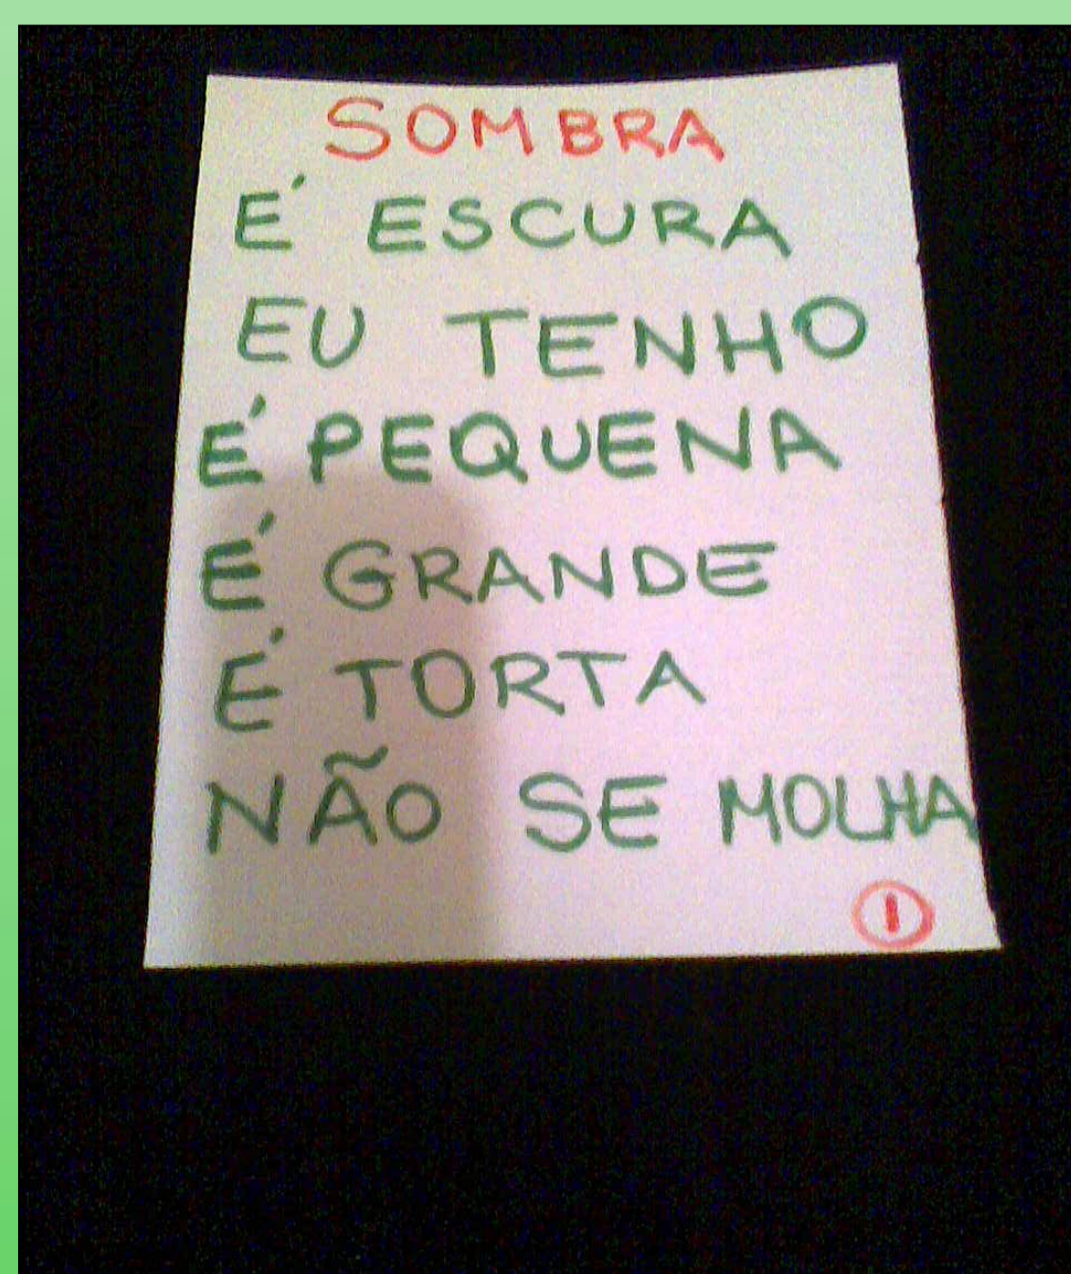 SOMBRA
É ESCURA
EU TENHO
É PEQUENA
É GRANDE
É TORTA
NÃO SE MOLHA
1